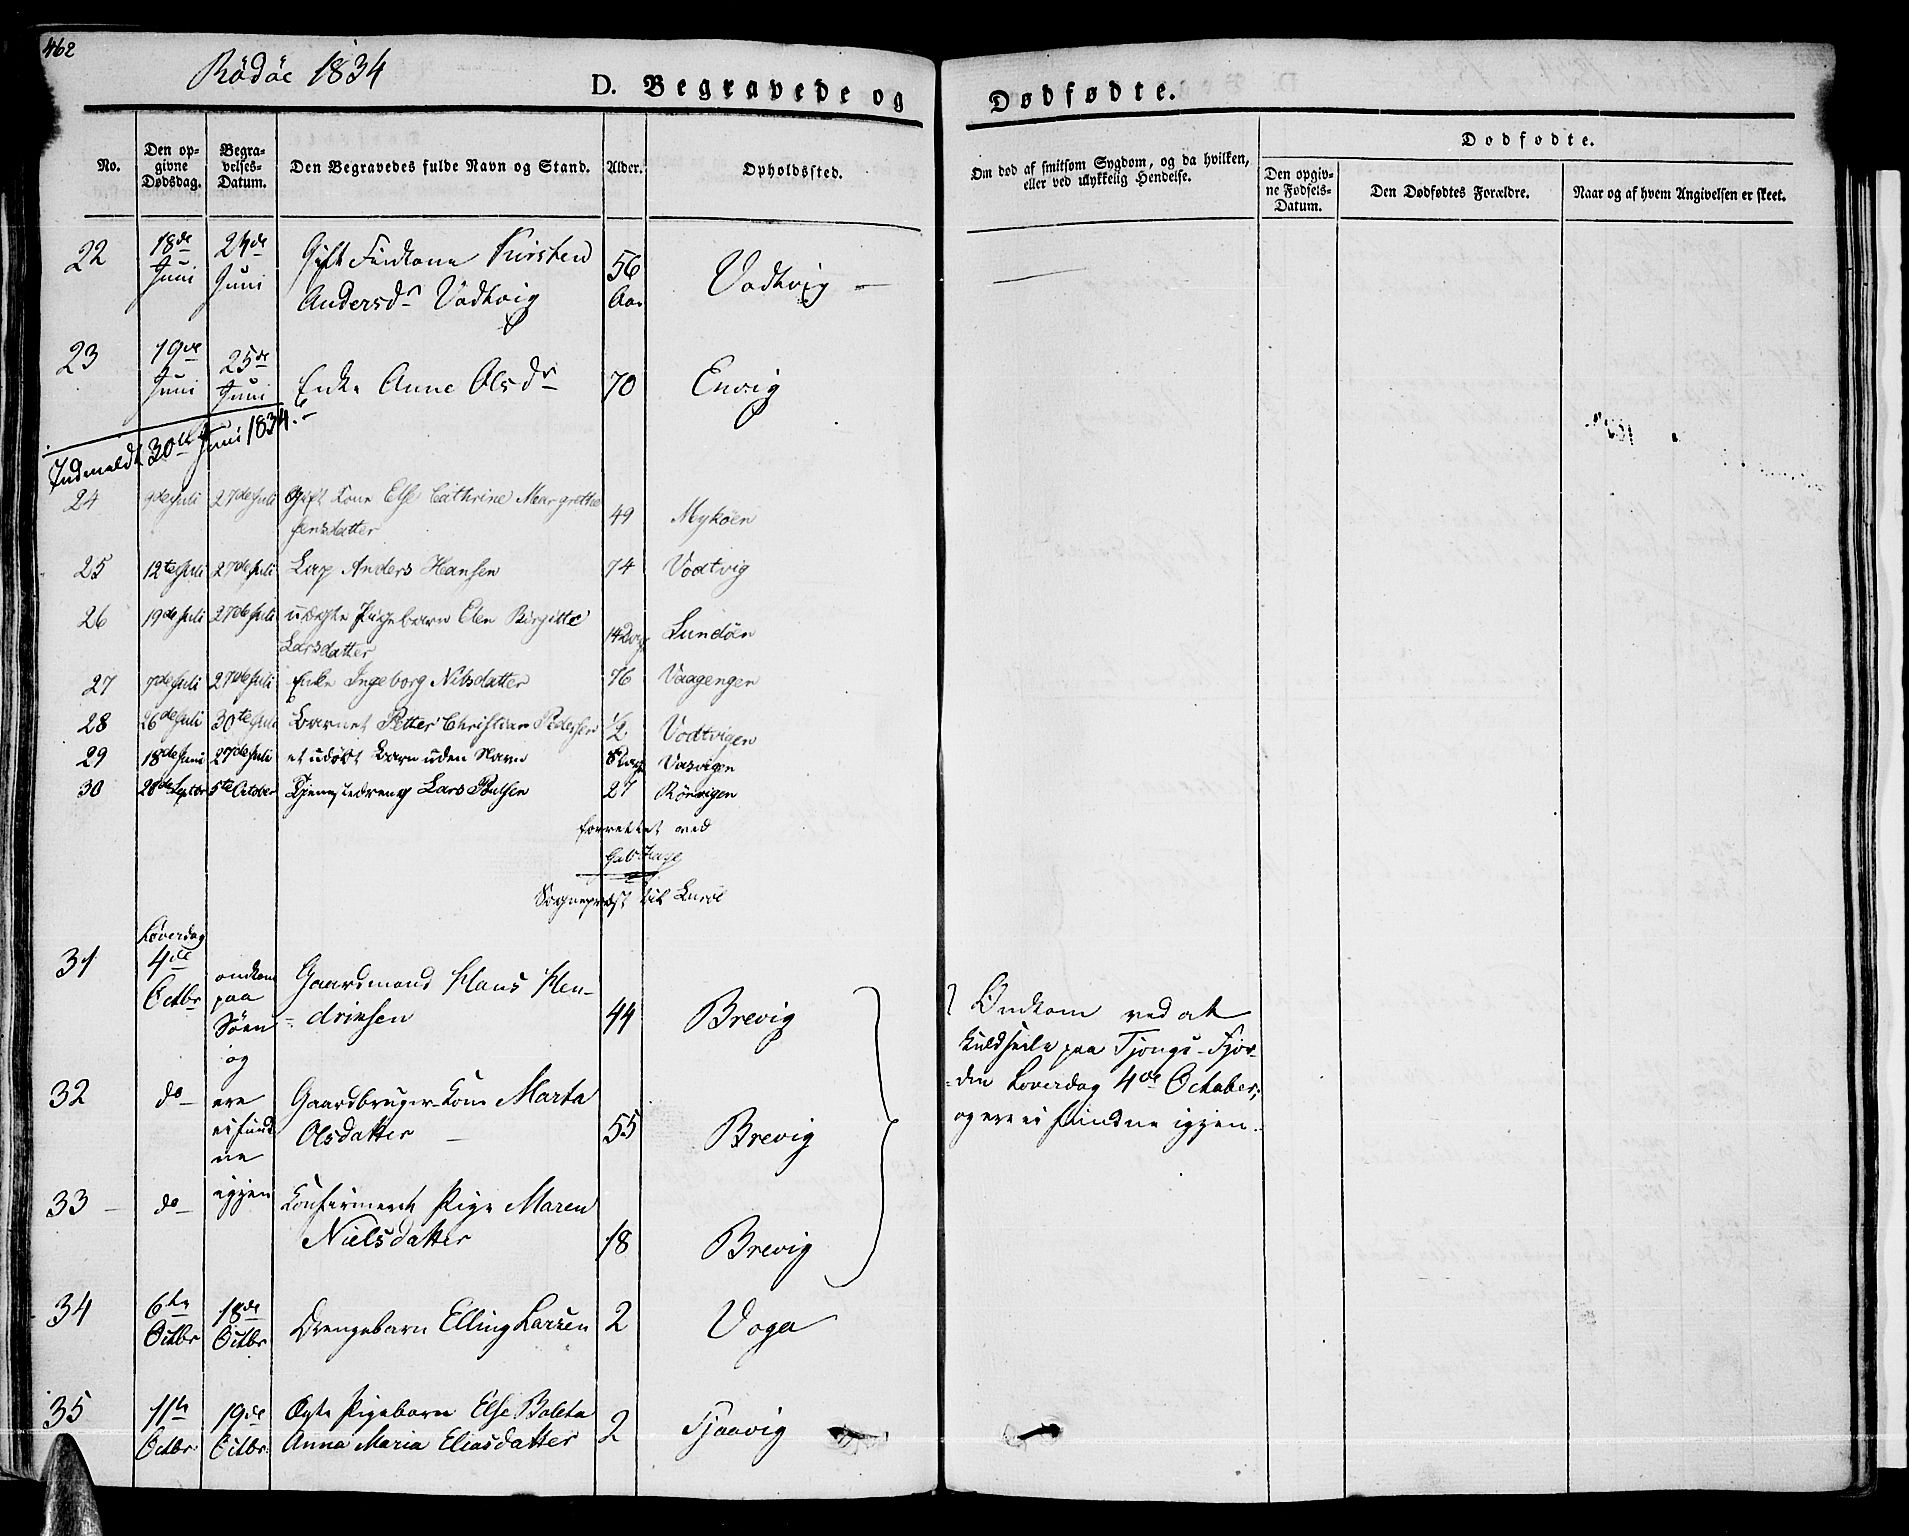 462
Rödöe 1834
D. Begravede og
Dødfødte.
No.
Den opgivne Dødsdag.
Begravelses-Datum.
Den Begravedes fulde Navn og Stand.
Alder.
Opholdssted.
Om død af smitsom Sygdom, og da hvilken,
eller ved ulykkelig Hendelse.
Dødfødte.
Den opgivne Fødsels-Datum.
Den Dødfødtes Forældre.
Naar og af hvem Angivelsen er skeet.
22 18de Juni 24de Juni Gift Kirsten
Andersdr Vodtvig 56 Aar Vodtvig
23 19de Juni 25de Juni Enke Anne Olsdr 70 Envig
Indmeldt 30te Juni 1834.
24 9de Juli 27de Juli Gift Kone Else Cathrine Margrethe
Jensdatter 49 Mykøen
25 12te Juli 27de Juli Lap Anders Hansen 74 Vodtvig
26 19de Juli 27de Juli uægte Pigebarn Elen Birgitte
Larsdatter 14 Dage Lundøen
27 7de Juli 27de Juli Enke Ingeborg Nilsdatter 76 Vaagengen
28 26de Juli 30te Juli Barnet Petter Christian Pedersen 1/2 Vodtvigen
29 18de Juni 27de Juli et udøbt Barn uden Navn 8 Dage
30 28de Septbr 5te October Tjenestedreng Lars Poulsen 27
forrettet ved
Sognepræst til Lurøe
31 Løverdag 4de Octbr
omkom
paa
Søen
og
ere
ei fund
ne
igjen
Gaardmand Hans Hen-
driksen 44 Brevig
Omkom ved at
kuldseile paa Tjongs-Fjor-
den Loverdag 4de October;
og ere ei fundne igjen.
32 do Gaardbruger-Kone Marta
Olsdatter 55 Brevig
33 do Konfirmeret Pige Maren
Nielsdatter 18 Brevig
34 6te Octbr 18de Octbr Drengebarn Elling Larsen 2 Voga
35 11te Octbr 19de Octbr Ægte Pigebarn Else Boleta
Anna Maria Eliasdatter 2 Tjaavig